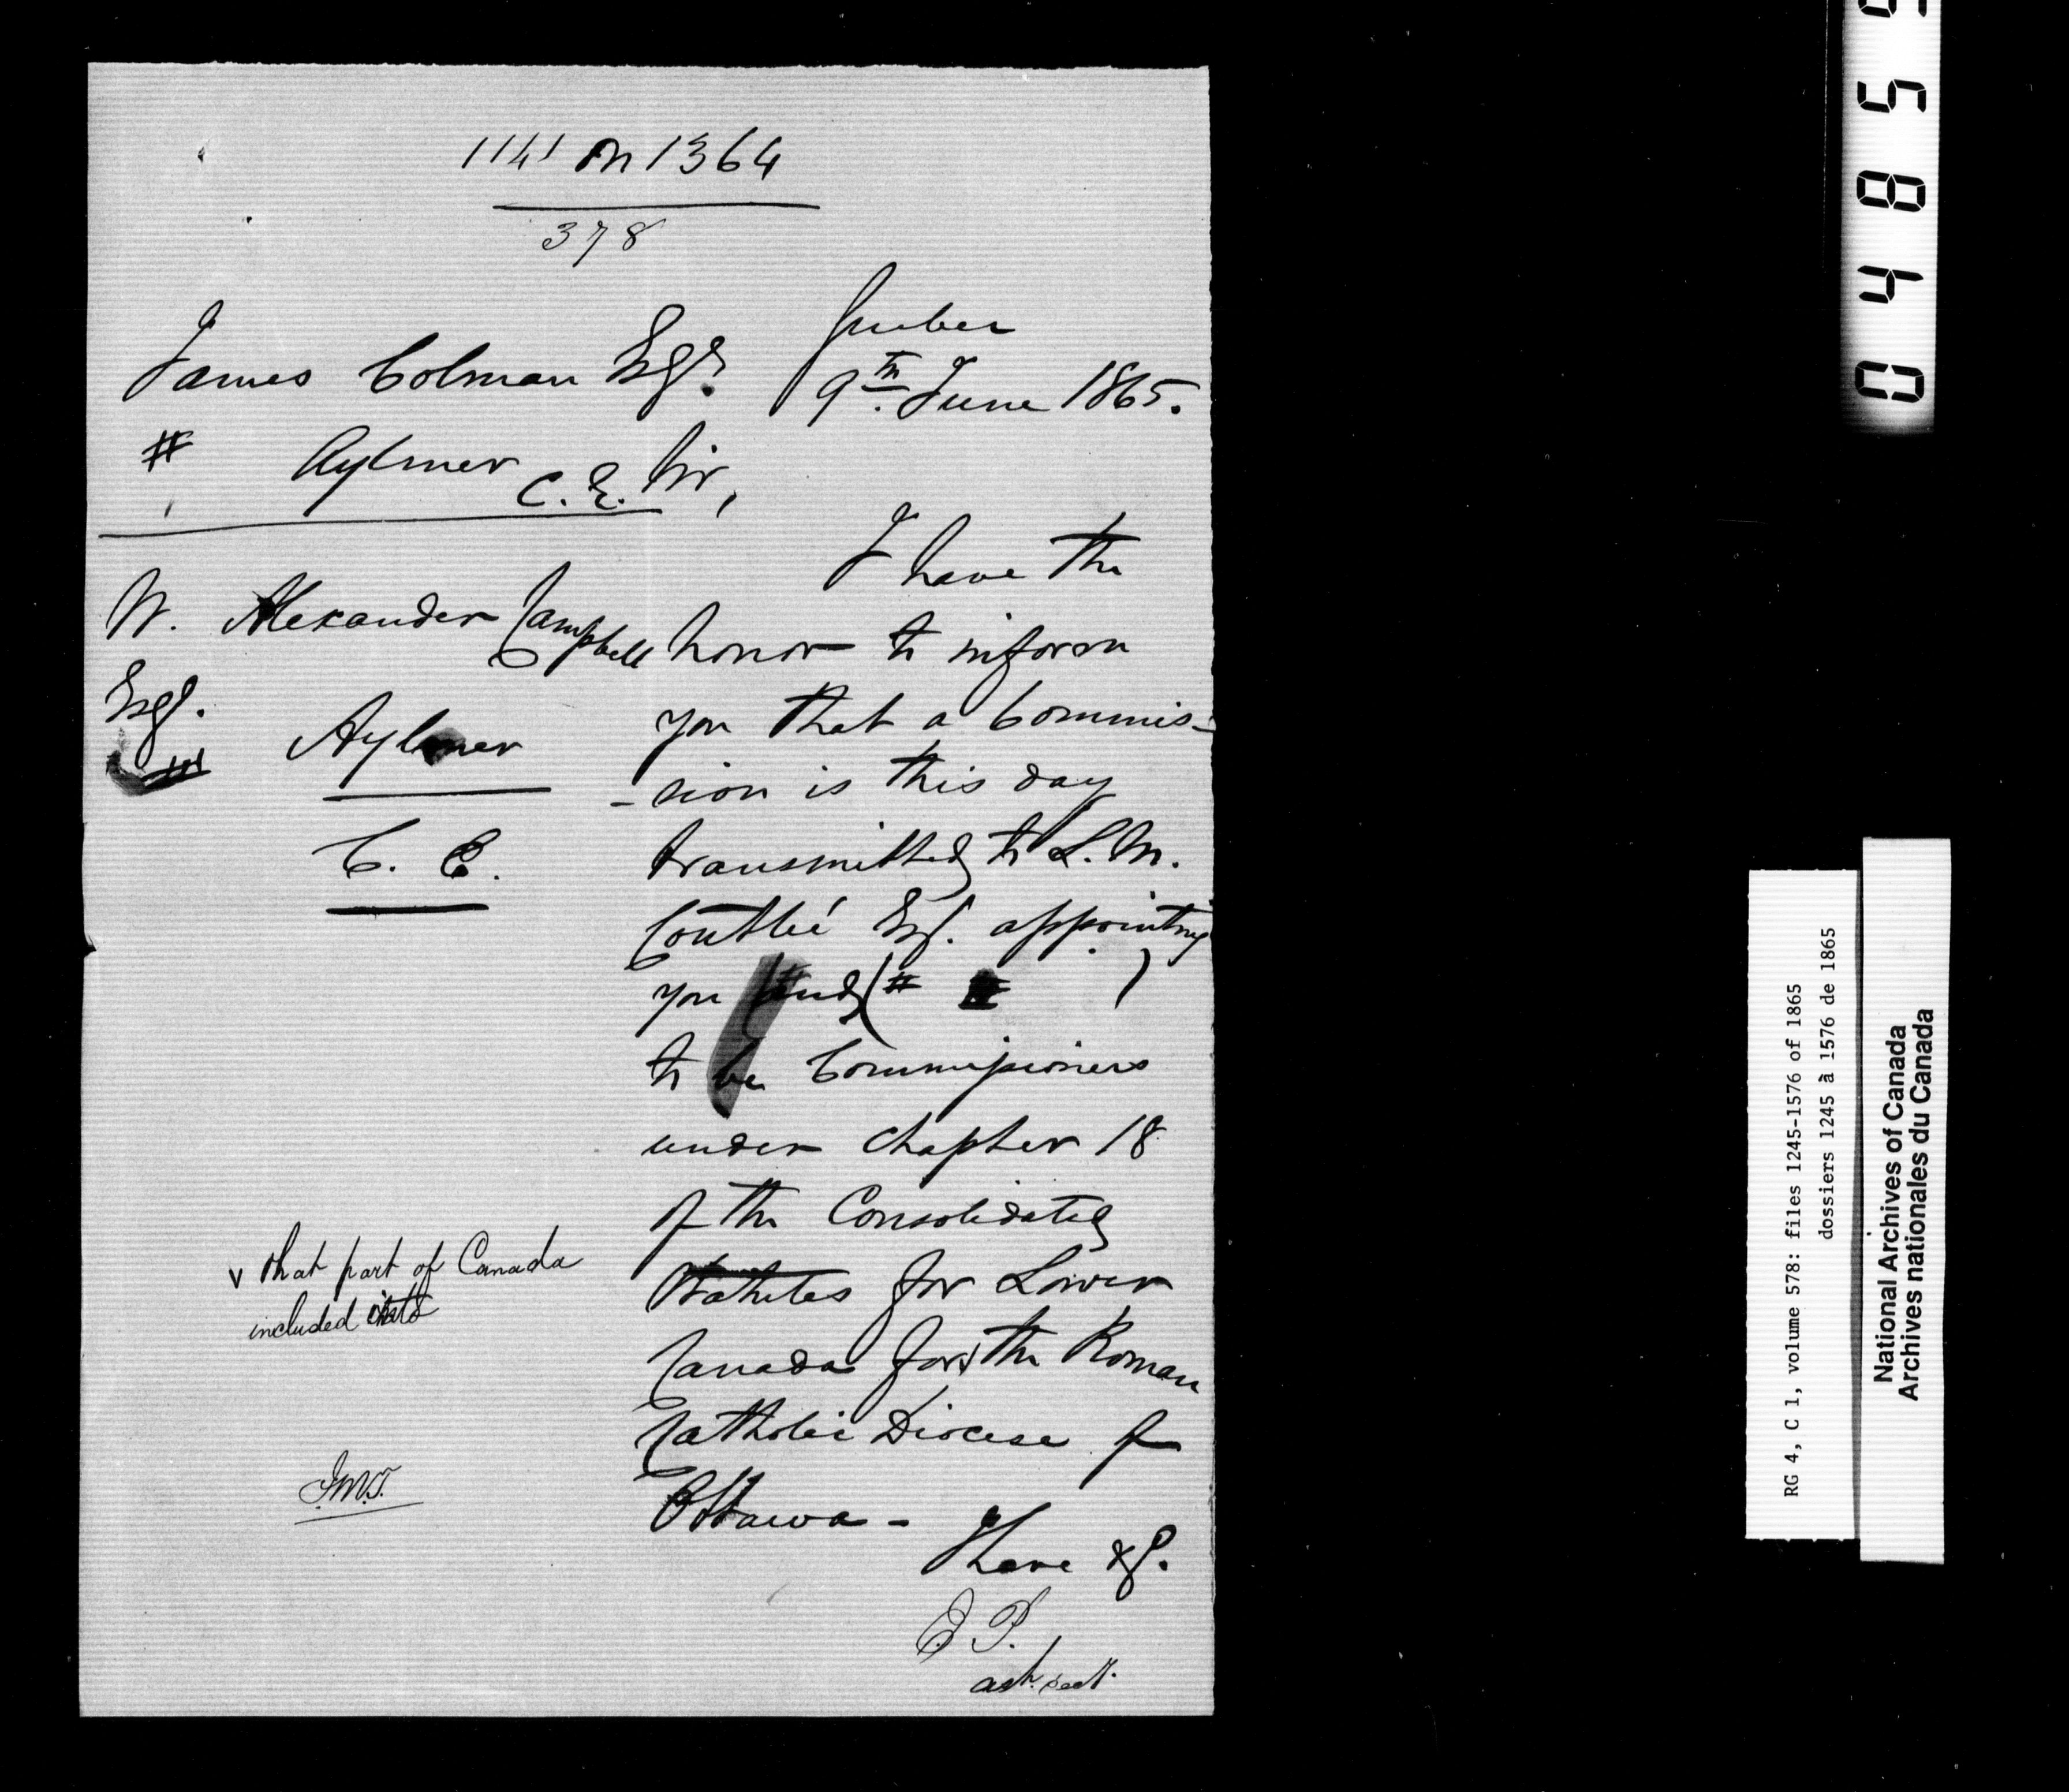 1141 on 1364
378
Quebec
9th. June 1865.
James Colman Esqr.
# Aylmer C.E.
Sir,
W. Alexander Campbell
Esq.
## Aylmer
C. E.
I have the
honor to inform
you that a Commis-
-sion is this day
transmitted to L. M.
Coutlée Esq. appointing
you (and (# # )
to be Commissioners
under Chapter 18
of the Consolidated
Statutes for Lower
Canada for v the Roman
Catholic Diocese of
Ottawa -
v that part of Canada
included into
J.M.T.
I have &c.
E P.
ast. sect.
0 4 8 5 9
RG 4, C 1, volume 578: files 1245-1576 of 1865
dossiers 1245 à 1576 de 1865
National Archives of Canada
Archives nationales du Canada